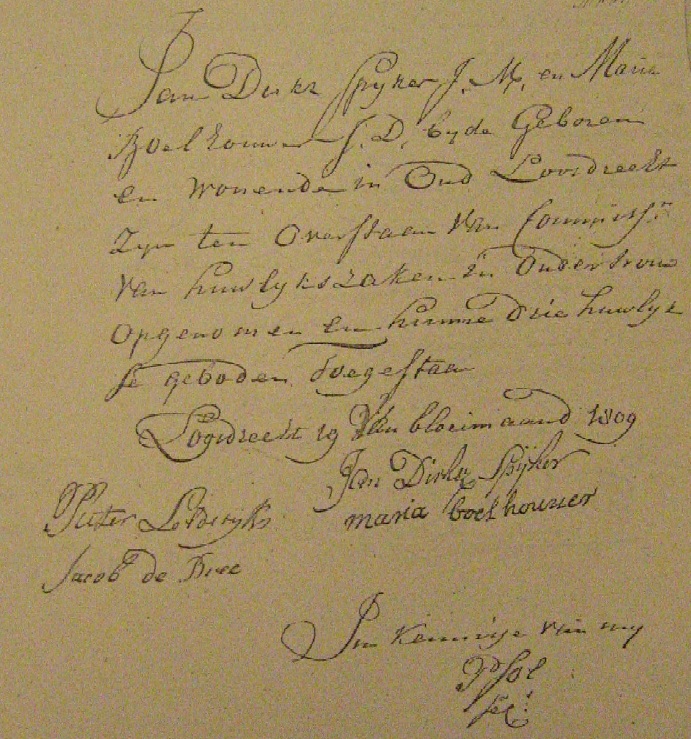 Jan Dirkz Spyker J. M, en Maria
Boelhouwer J. D, byde Geboren
en Wonende in Oud Loosdrecht
Zyn ten Overstaan van Commiss.n
van huwlykszaken in Ondertrouw
Opgenomen en hunne drie huwlyk
se geboden toegestaan
Loosdrecht 19 van bloeimaand 1809
Jan Dirkz Spijker
maria boelhouwer
Pieter Lodewyks
Jacob de Bree
In kennisse van my
Sec: